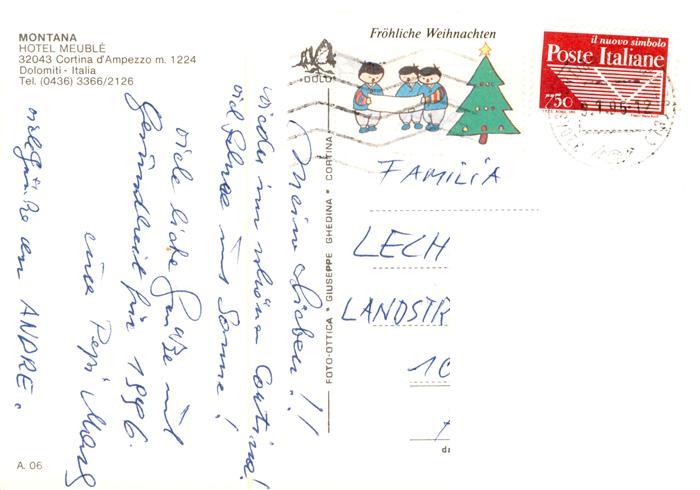 MONTANA
HOTEL MEUBLÈ
32043 Cortina d'Ampezzo m. 1224
Dolomiti - Italia
Tel. (0436) 3366/2126
Fröhliche Weihnachten
il nuovo simbolo
Poste Italiane
750
Meine Lieben!!
wieder im schönen Cortina!
viel Schnee und Sonne!
viele liebe Grüße und
Gesundheit für 1996
eure Pepi
viele Grüße an ANDRE.
FOTO-OTTICA * GIUSEPPE GHEDINA * CORTINA
FAMILIA
LECH
LANDSTR
10
A. 06